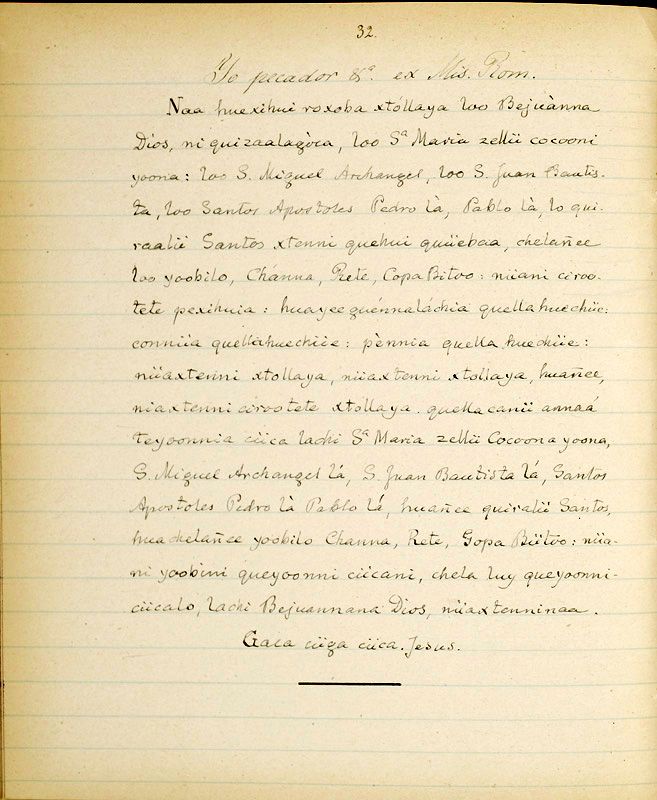 32.
Yo pecador &ª. ex Mis. Rom.
Naa huexihui roxoba xtóllaya loo Bejuànna
Dios, ni quizaalagòca, loo Sª Maria zellii cocooni
yoona: loo S. Miguel Archangel, loo S. Juan Bautis-
ta, loo Santos Apostoles Pedro là, Pablo là, lo qui-
raalii Santos xtenni quehui quiiebaa, chelañee
loo yoobilo, Channa, Rete, Copa Bitoo: niiani ciroo-
tete pexihuia: huayee quénnaláchia quella huechiic:
conniia quellahuechiie: pènnia quella huechiie:
niiaxtenni xtollaya, niiaxtenni xtollaya, huañee,
niaxtenni cirootete xtollaya. quella canii annaá
teyoonnia ciica lachi Sª Maria zellii Cocoona yoona,
S. Miguel Archangel lá, S. Juan Bautista lá, Santos
Apostoles Pedro là Pablo lá, huañee quiralii Santos,
huachelañee yoobilo Channa, Rete, Gopa Biitoo: niia-
ni yoobini queyoonni ciicani, chela luy queyoonni-
ciicalo, lachi Bejuannana Dios, niiaxtenninaa.
Gaca ciiga ciica. Jesus.